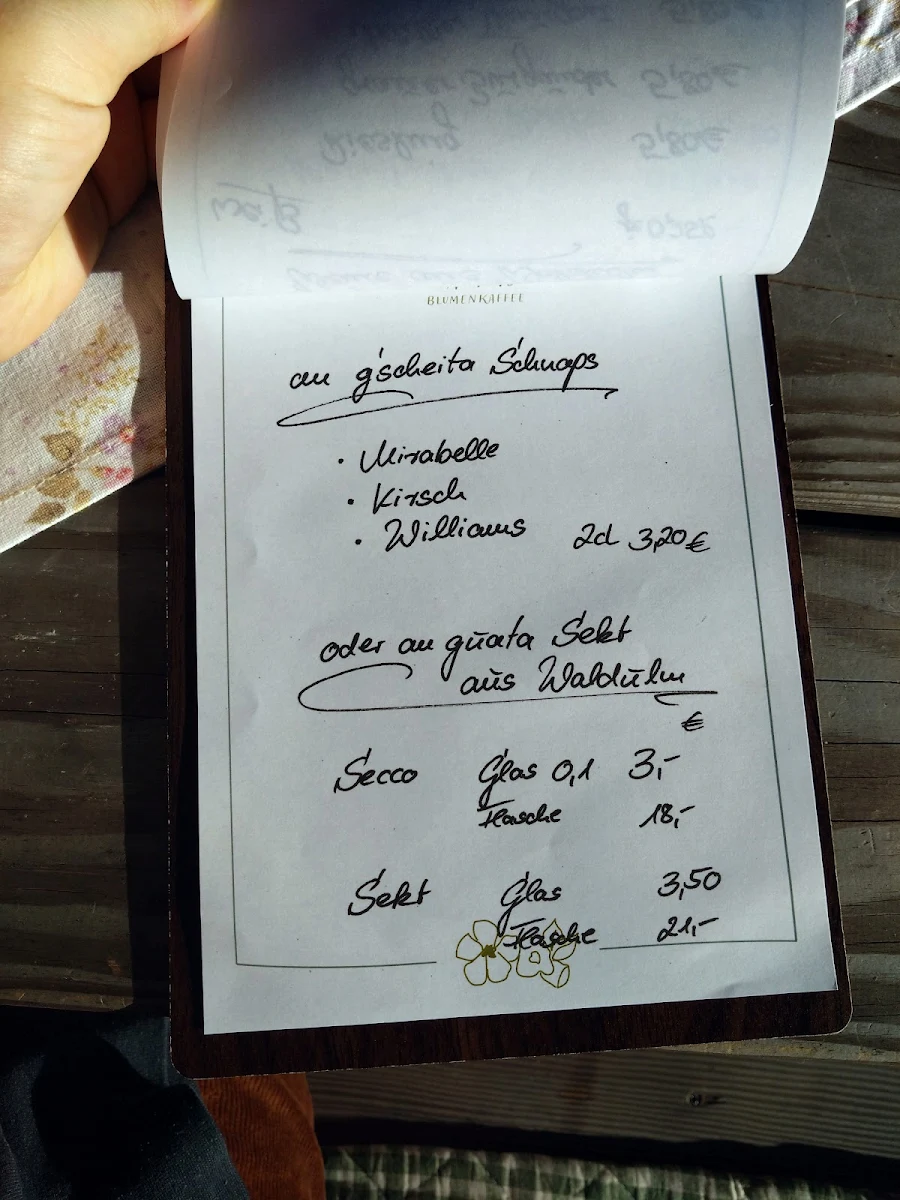 BLUMENKAFFEE
an g'scheita Schnaps
· Mirabelle
· Kirsch
· Williams 2cl 3,20 €
oder an guata Sekt
aus Waldulm
€
Secco Glas 0,1 3,-
Flasche 18,-
Sekt Glas 3,50
Flasche 21,-
weiß 0,25l
Riesling 5,80€
5,80€